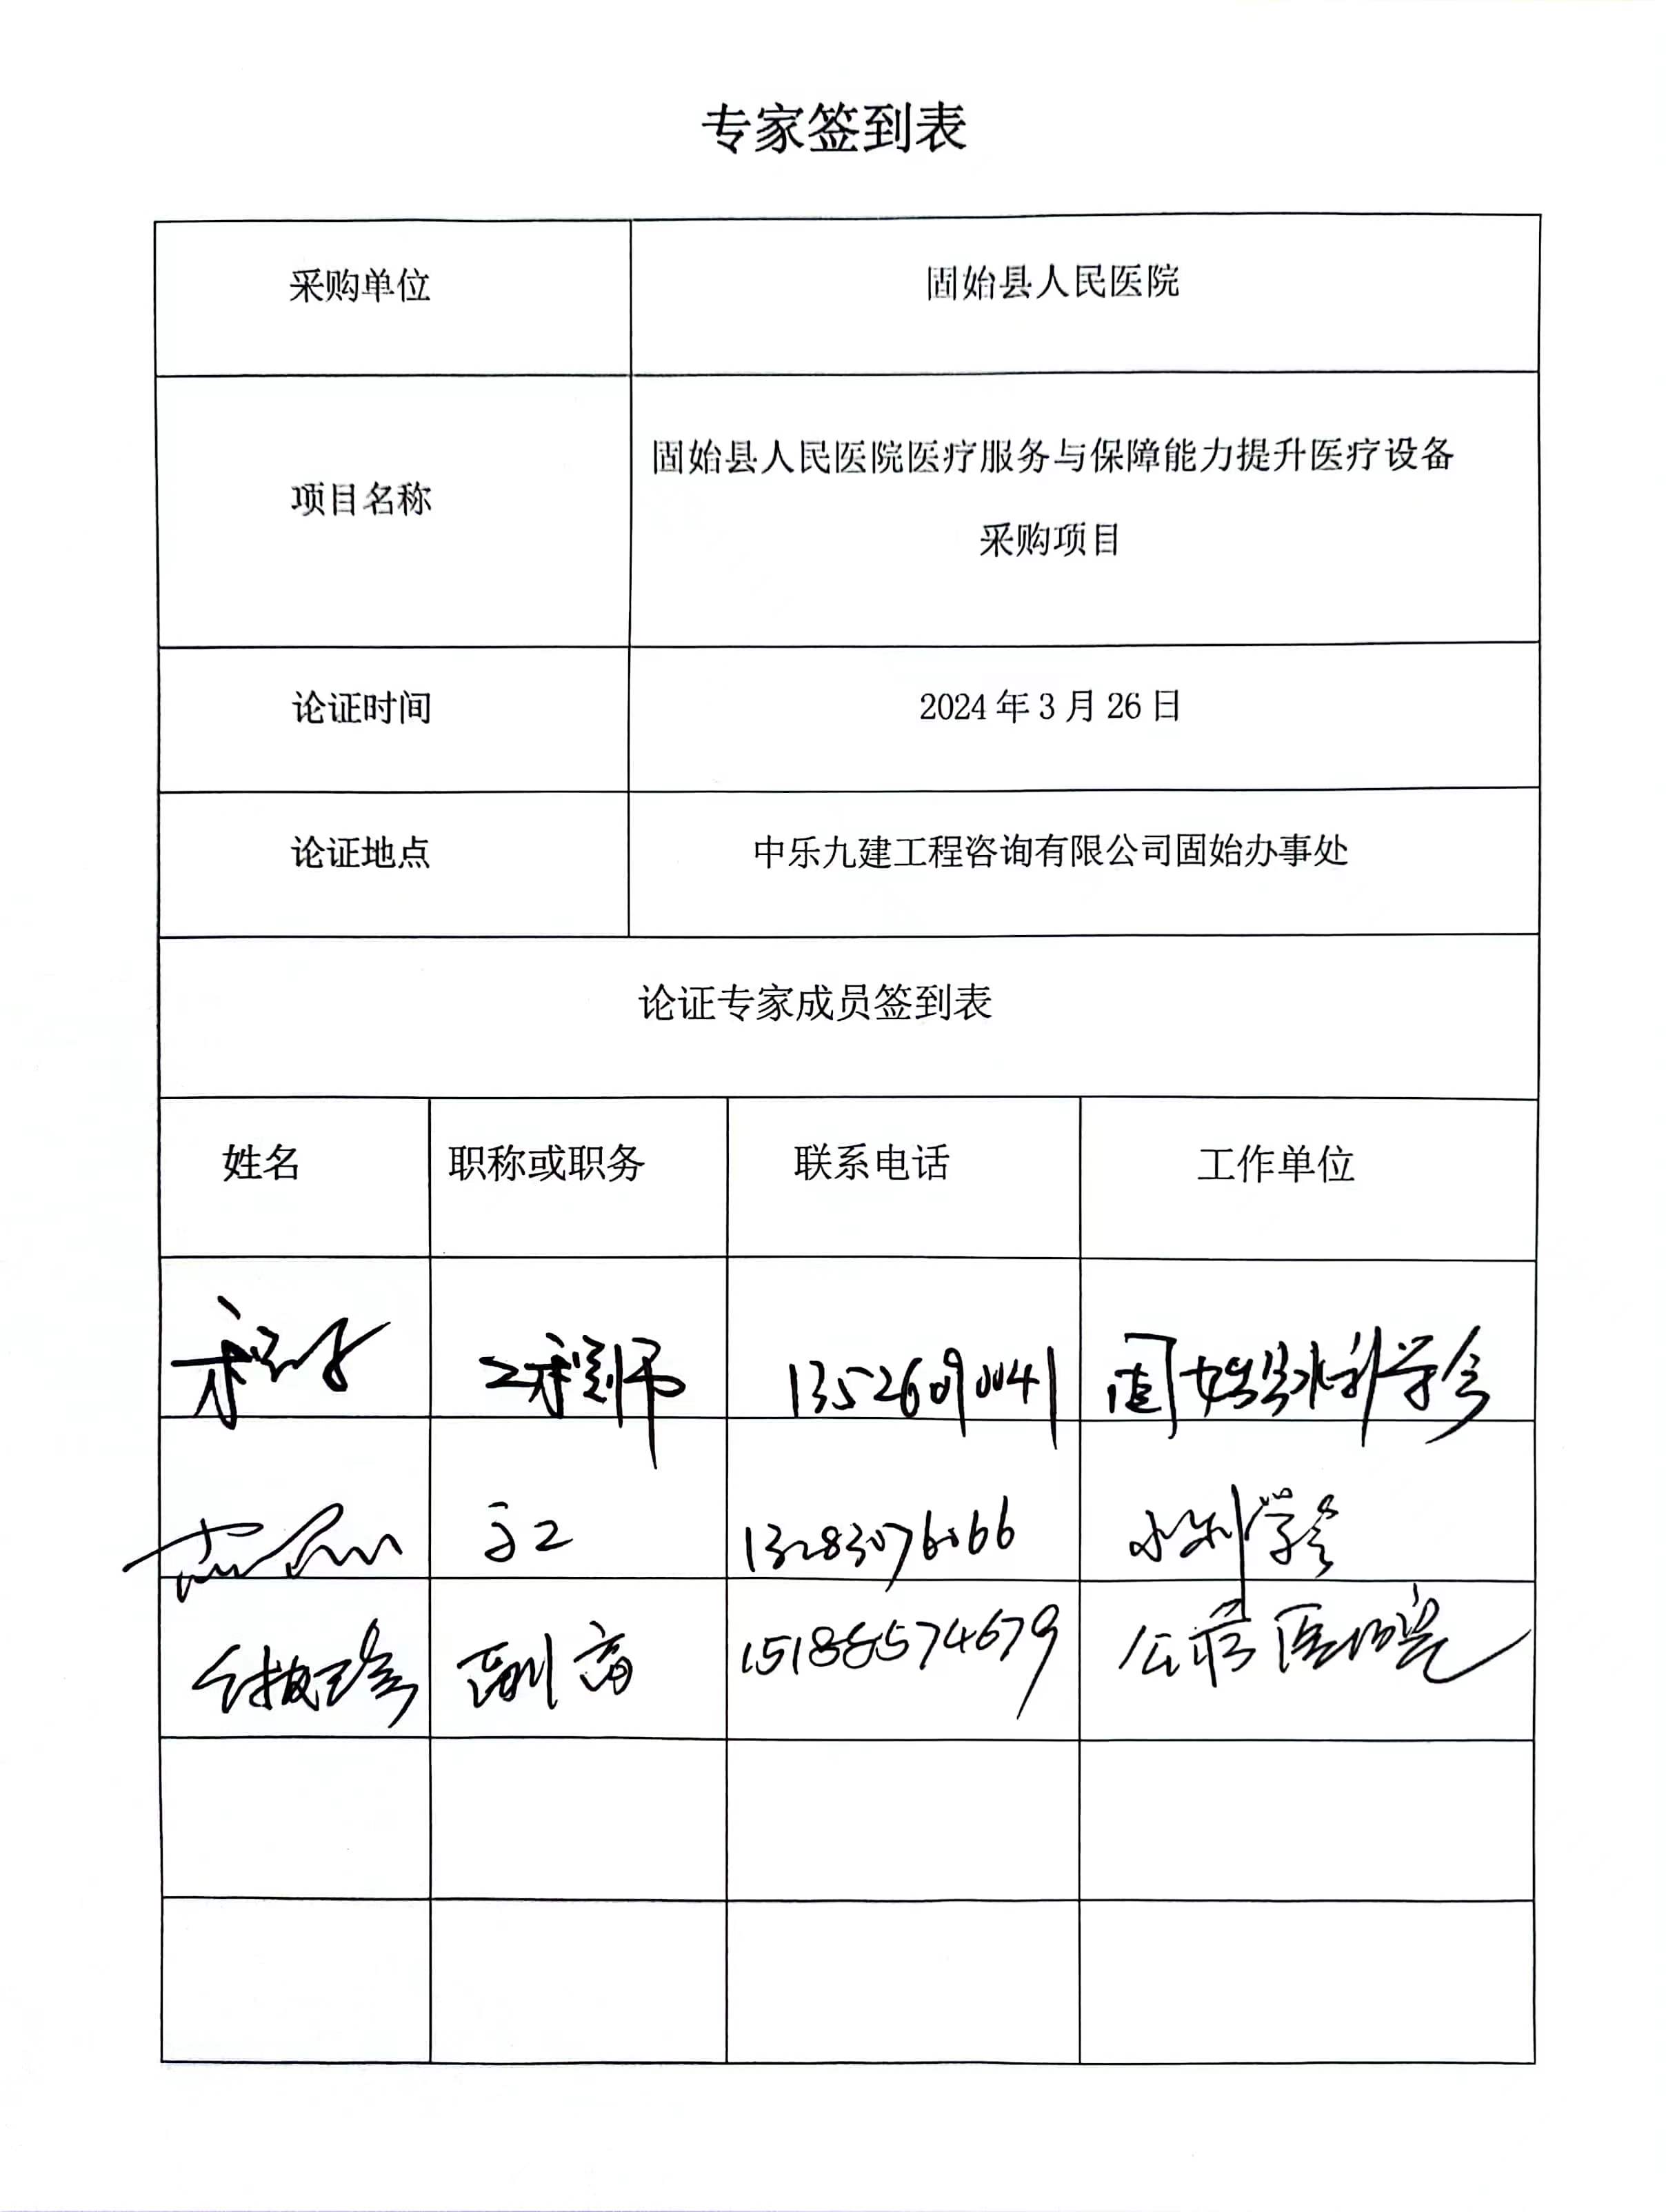 专家签到表
采购单位
固始县人民医院
项目名称
固始县人民医院医疗服务与保障能力提升医疗设备
采购项目
论证时间
2024年3月26日
论证地点
中乐九建工程咨询有限公司固始办事处
论证专家成员签到表
姓名 职称或职务 联系电话 工作单位
工程师 固始县水利学会
13283076066 水利学会
副高 15188574679 医院